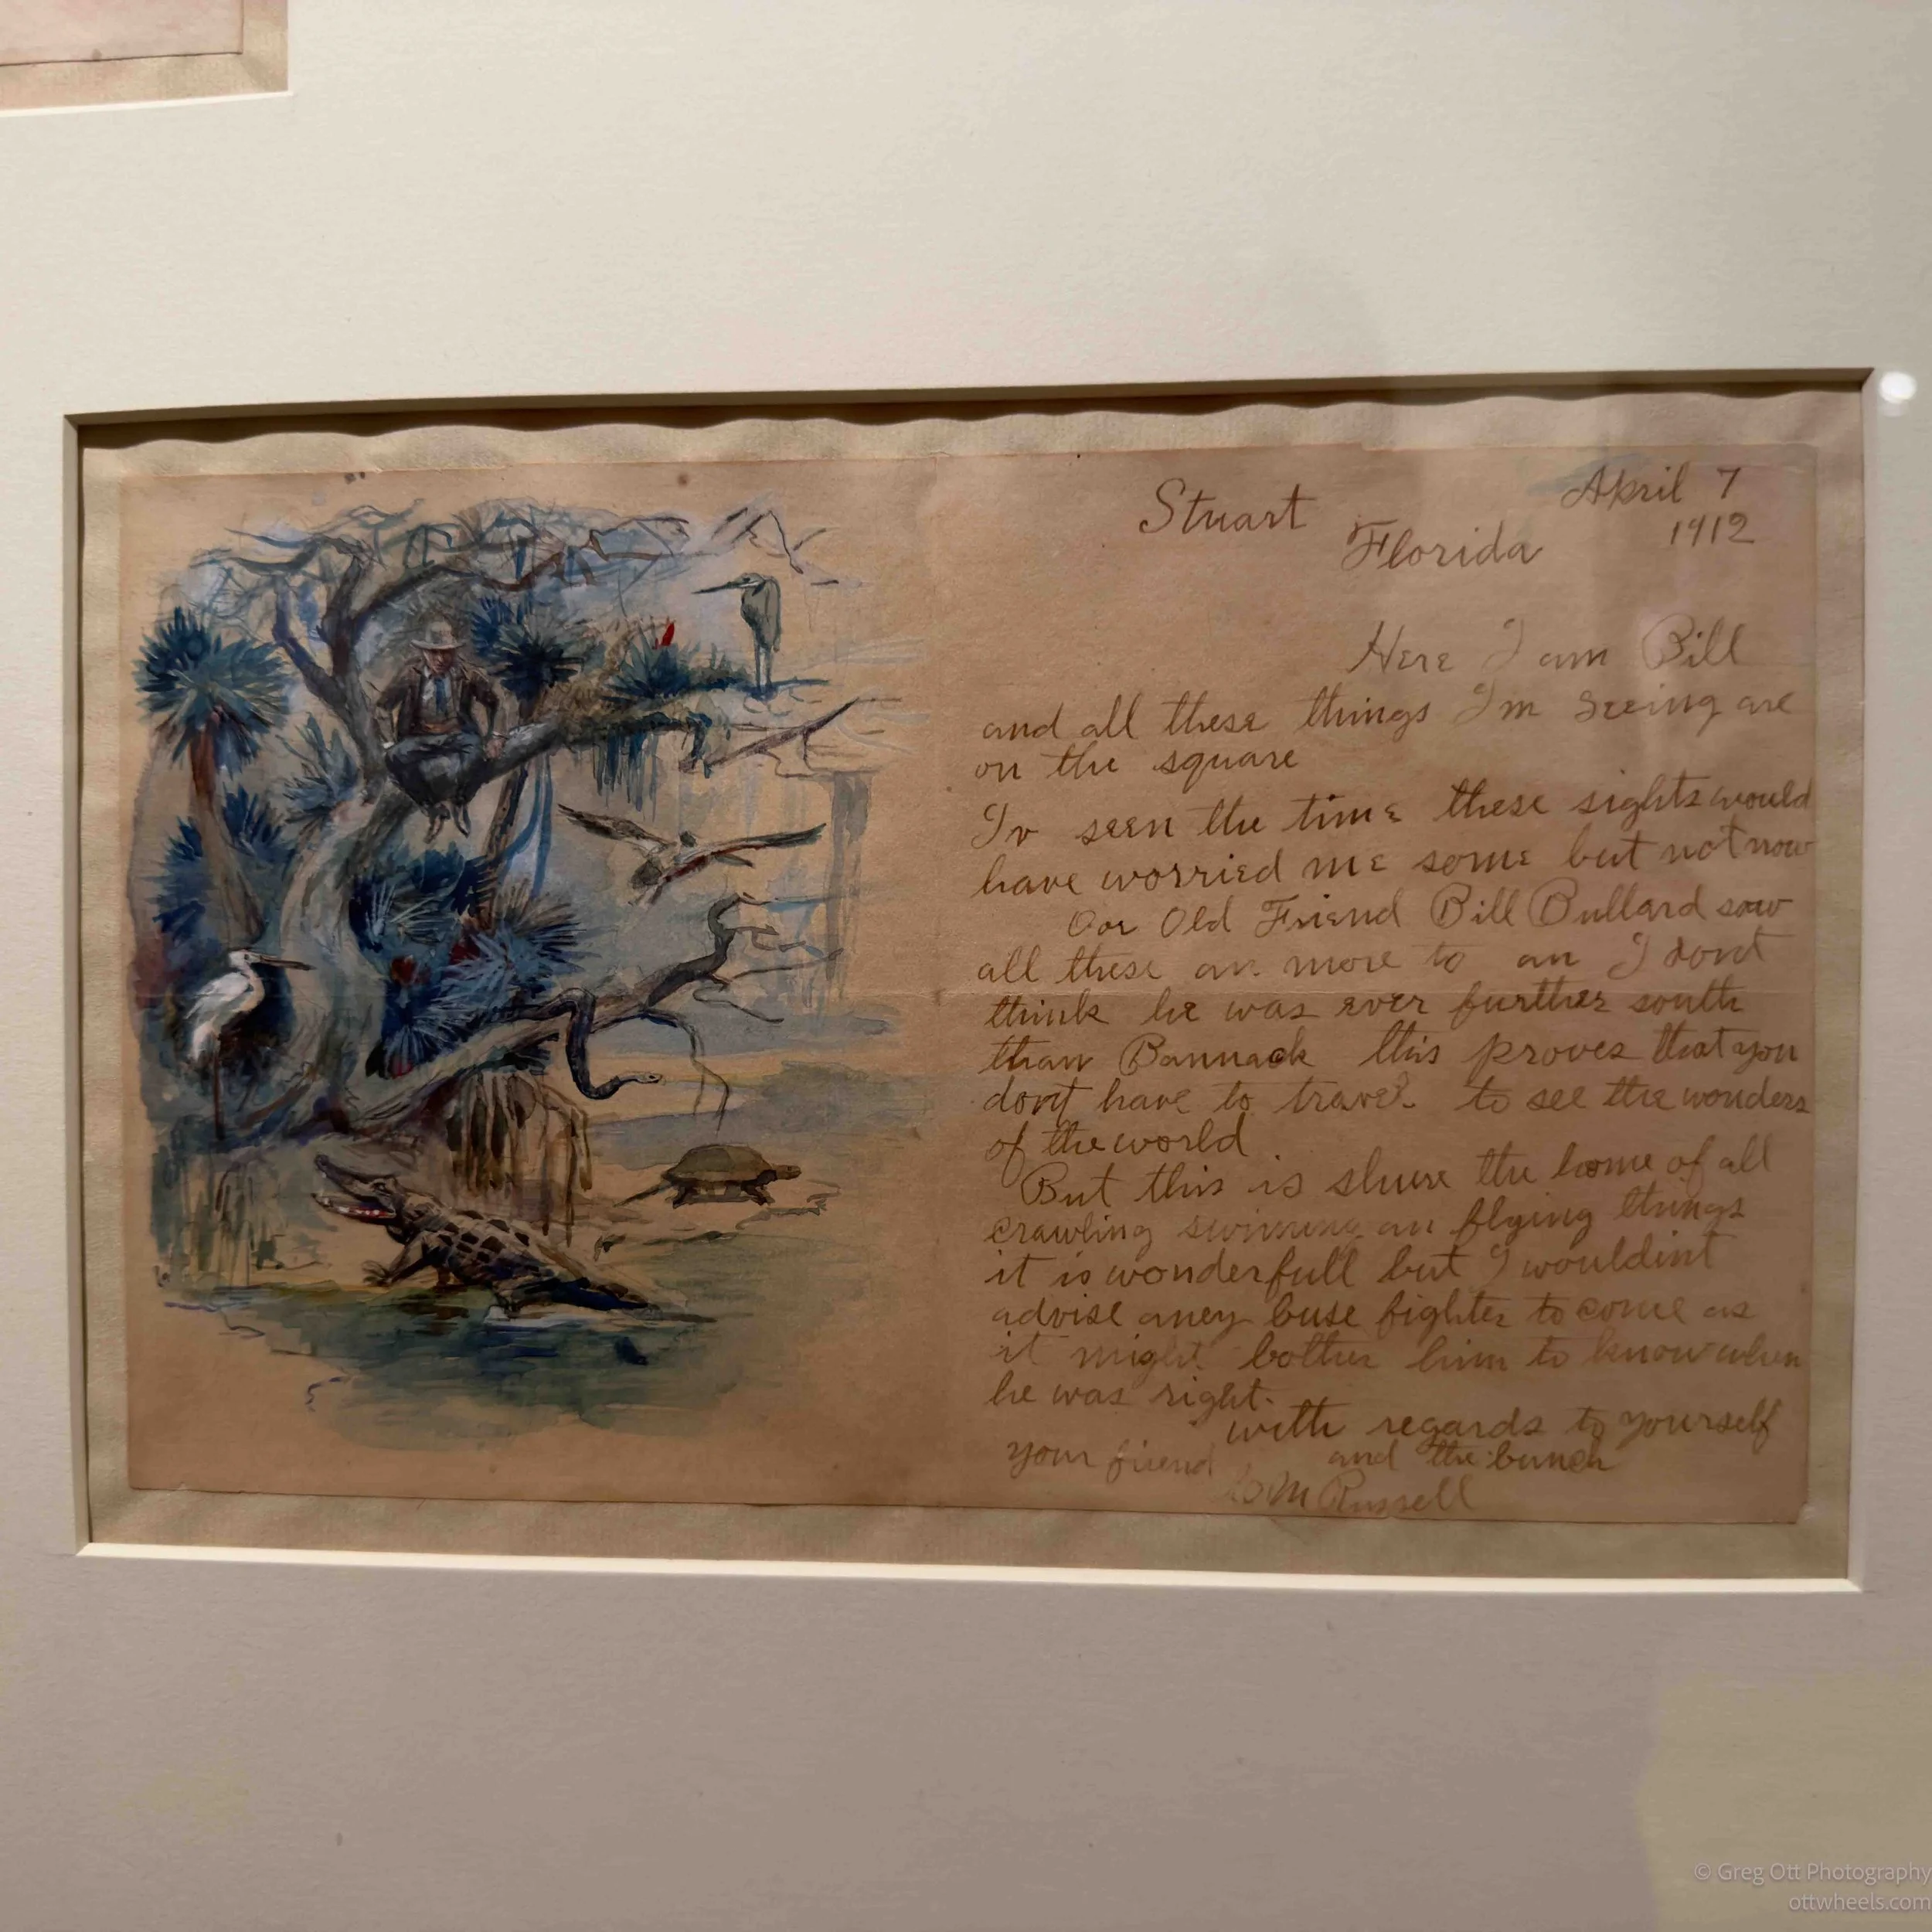 Stuart April 7
Florida 1912
Here I am Bill
and all these things I'm seeing are
on the square
Iv seen the time these sights would
have worried me some but not now
Oor Old Friend Bill Bullard saw
all these an more to an I dont
think he was ever further south
than Bannack this proves that you
dont have to travel to see the wonders
of the world
But this is shure the home of all
crawling swimming an flying things
it is wonderfull but I wouldint
advise aney buse fighter to come as
it might bother him to know when
he was right.
with regards to yourself
your friend and the bunch
CM Russell
© Greg Ott Photography
ottwheels.com